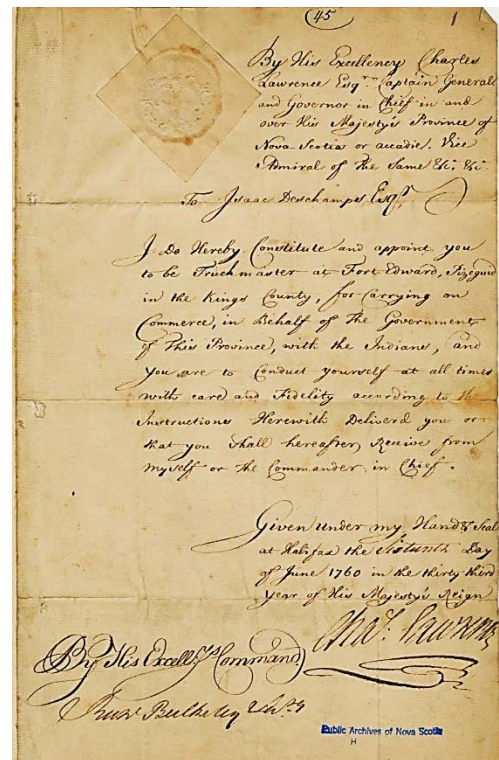 (45)
1
By His Excellency Charles
Lawrence Esqr. Captain General
and Governor in Chief in and
over His Majesty's Province of
Nova Scotia or accadie, Vice
Admiral of the Same &c. &c.
To Isaac Deschamps Esqr.
I Do Hereby Constitute and appoint you
to be Truckmaster at Fort Edward, Pizeguid
in the Kings County, for Carrying on
Commerce, in Behalf of the Government
of this Province, with the Indians, and
you are to Conduct yourself at all times
with care and Fidelity according to the
Instructions Herewith Deliverd you or
that you Shall hereafter Receive from
myself or the Commander in Chief.
Given under my Hand & Seal
at Halifax the Sixteenth Day
of June 1760 in the thirty third
year of His Majesty's Reign
Chas. Lawrence
By His Excellys Command
Richd Bulkeley Secy
Public Archives of Nova Scotia
H